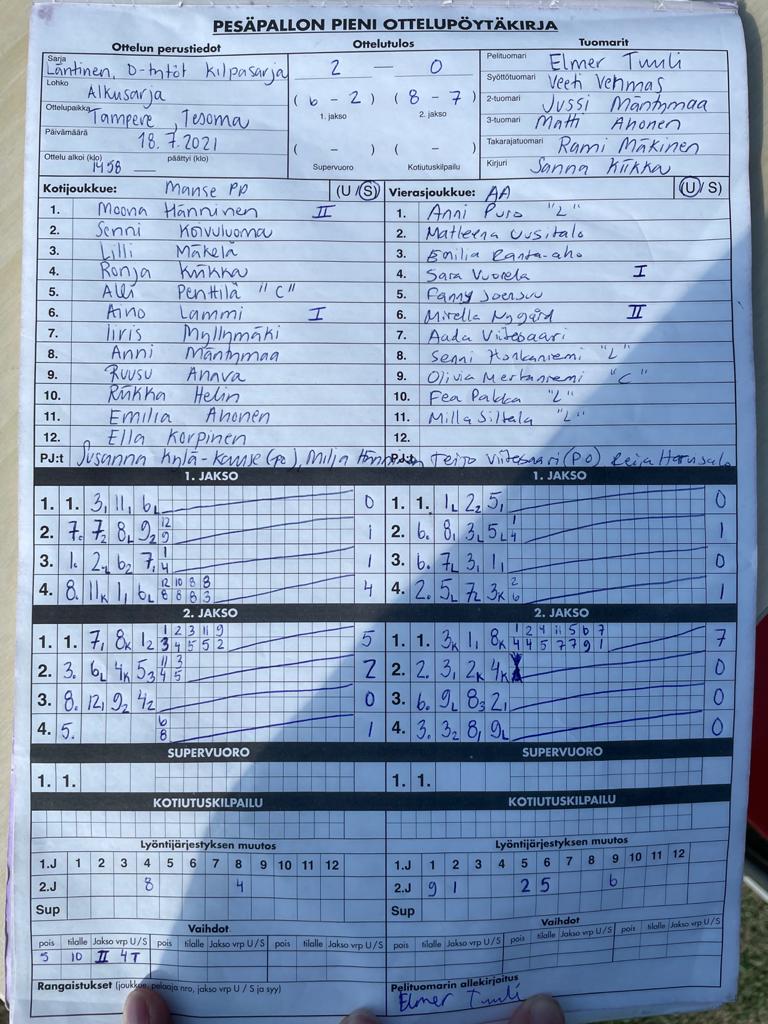 PESÄPALLON PIENI OTTELUPÖYTÄKIRJA
Ottelun perustiedot
Sarja Läntinen, D-tytöt kilpasarja
Lohko Alkusarja
Ottelupaikka Tampere, Tesoma
Päivämäärä 18.7.2021
Ottelu alkoi (klo) 1458 päättyi (klo)
Ottelutulos
2 — 0
(6 - 2) (8 - 7)
1. jakso 2. jakso
( - ) ( - )
Supervuoro Kotiutuskilpailu
Tuomarit
Pelituomari Elmer Tuuli
Syöttötuomari Veeti Vehmas
2-tuomari Jussi Mäntymaa
3-tuomari Matti Ahonen
Takarajatuomari Rami Mäkinen
Kirjuri Sanna Kiikka
Kotijoukkue: Manse PP (U / S)
1. Moona Hänninen II
2. Senni Koivuluoma
3. Lilli Mäkelä
4. Ronja Kiikka
5. Alli Penttilä "C"
6. Aino Lammi I
7. Iiris Myllymäki
8. Anni Mäntymaa
9. Ruusu Annva
10. Riikka Helin
11. Emilia Ahonen
12. Ella Korpinen
PJ:t Susanna (po), Milja
Vierasjoukkue: AA (U / S)
1. Anni Puro "L"
2. Matleena Uusitalo
3. Emilia Ranta-aho
4. Sara Vuorela I
5. Fanny Joensuu
6. Mirella Nygård II
7. Aada Viitasaari
8. Senni Honkaniemi "L"
9. Olivia Merkaniemi "C"
10. Fea Pakka "L"
11. Milla Siltala "L"
12.
PJ:t Teijo Viitasaari (PO) Reija
1. JAKSO
1. 1. 3, 11, 6L 0
2. 7. 72 8L 92 12 9 1
3. 1. 2L 62 7, 1 4 1
4. 8. 11K 1, 6L 12 10 8 8 8 8 8 3 4
1. JAKSO
1. 1. 1L 22 5, 0
2. 6. 8, 3L 5L 1 4 1
3. 6. 7L 3, 1, 0
4. 2. 5L 7L 3K 2 6 1
2. JAKSO
1. 1. 7, 8K 12 1 2 3 11 9 3 4 5 5 2 5
2. 3. 6L 4K 53 11 3 4 5 2
3. 8. 12, 92 42 0
4. 5. 6 8 1
2. JAKSO
1. 1. 3K 1, 8K 1 2 4 11 5 6 7 4 4 5 7 7 9 1 7
2. 2. 3, 2K 4K 0
3. 6. 9L 83 2, 0
4. 3. 32 8, 9L 0
SUPERVUORO
1. 1.
SUPERVUORO
1. 1.
KOTIUTUSKILPAILU
KOTIUTUSKILPAILU
Lyöntijärjestyksen muutos
1.J 1 2 3 4 5 6 7 8 9 10 11 12
2.J 8 4
Sup
Lyöntijärjestyksen muutos
1.J 1 2 3 4 5 6 7 8 9 10 11 12
2.J 9 1 2 5 6
Sup
Vaihdot
pois tilalle Jakso vrp U/S pois tilalle Jakso vrp U/S pois tilalle Jakso vrp U/S
5 10 II 4T
Vaihdot
pois tilalle Jakso vrp U/S pois tilalle Jakso vrp U/S pois tilalle Jakso vrp U/S
Rangaistukset (joukkue, pelaaja nro, jakso vrp U / S ja syy)
Pelituomarin allekirjoitus
Elmer Tuuli